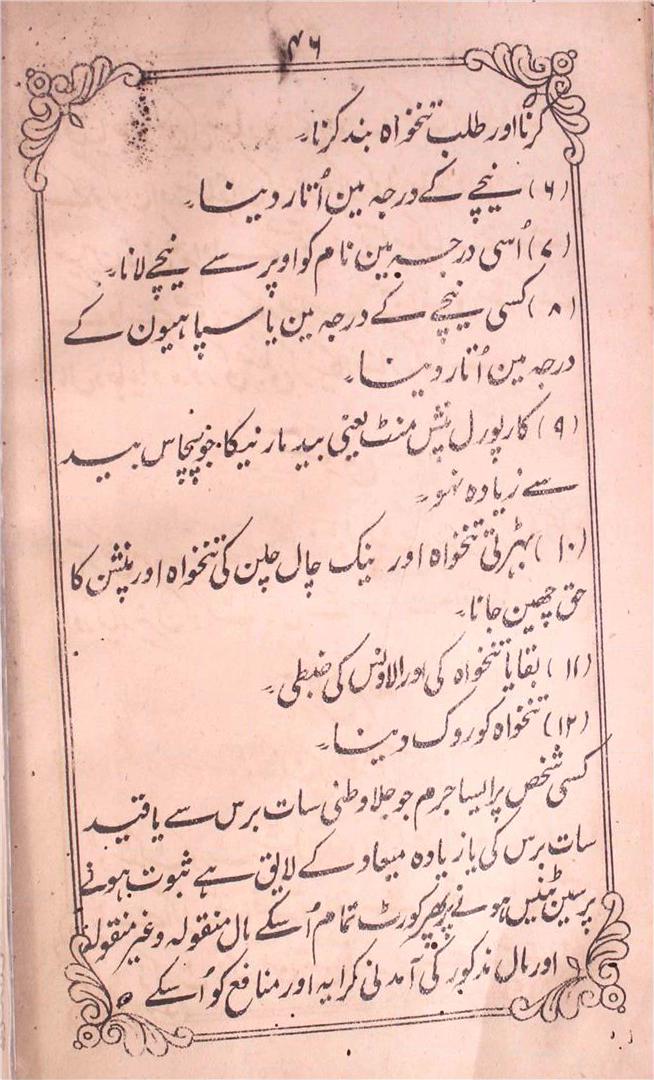 ۴۶
کرنا اور طلب تنخواہ بند کرنا۔
(۶) نیچے کے درجہ مین اُتار دینا۔
(۷) اُسی درجہ مین نام کو اوپر سے نیچے لانا۔
(۸) کسی نیچے کے درجہ مین یا سپاہیون کے
درجہ مین اُتار دینا۔
(۹) کارپورل پنش منٹ یعنی بید مارنیکا۔ جو پچاس بید
سے زیادہ نہو۔
(۱۰) بہڑتی تنخواہ اور نیک چال چلن کی تنخواہ اور پنشن کا
حق چھین جانا۔
(۱۱) بقایا تنخواہ کی اور الاونس کی ضبطی۔
(۱۲) تنخواہ کو روک دینا۔
کسی شخص پر ایسا جرم جو جلا وطنی سات برس سے یا قتید
سات برس کی یا زیادہ میعاد کے لایق ہے ثبوت ہونے
پر سین ٹنیس ہونے پر پھر کورٹ تمام اُسکے مال منقولہ وغیر منقولہ
اور مال مذکورہ کی آمدنی کرایہ اور منافع کو اُسکے